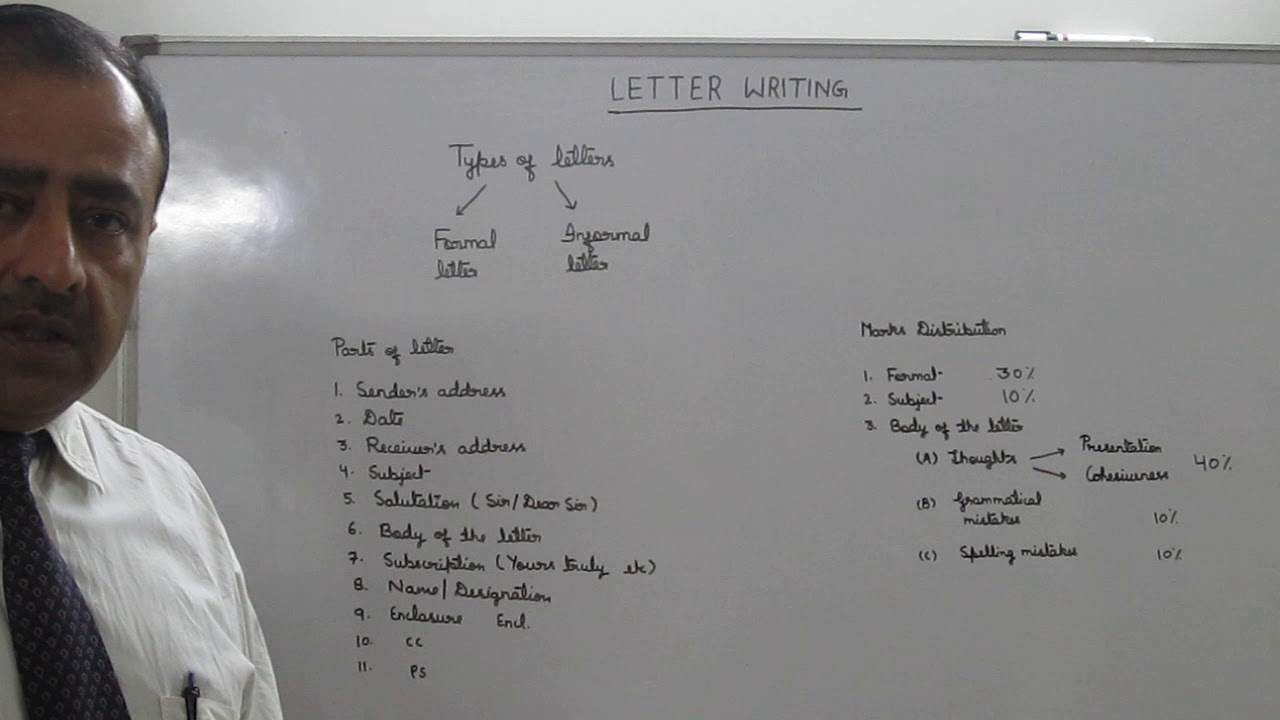 LETTER WRITING
Types of letters
Formal letter
Informal letter
Parts of letter
1. Sender's address
2. Date
3. Receiver's address
4. Subject
5. Salutation (Sir/Dear Sir)
6. Body of the letter
7. Subscription (Yours truly etc)
8. Name/Designation
9. Enclosure Encl.
10. CC
11. PS
Marks Distribution
1. Format 30%
2. Subject 10%
3. Body of the letter
(A) Thoughts Presentation
Cohesiveness 40%
(B) Grammatical
mistakes 10%
(C) Spelling mistakes 10%